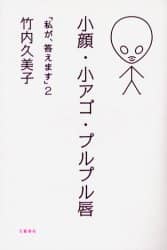 小顔・小アゴ・プルプル唇
「私が、答えます」2
竹内久美子
文藝春秋